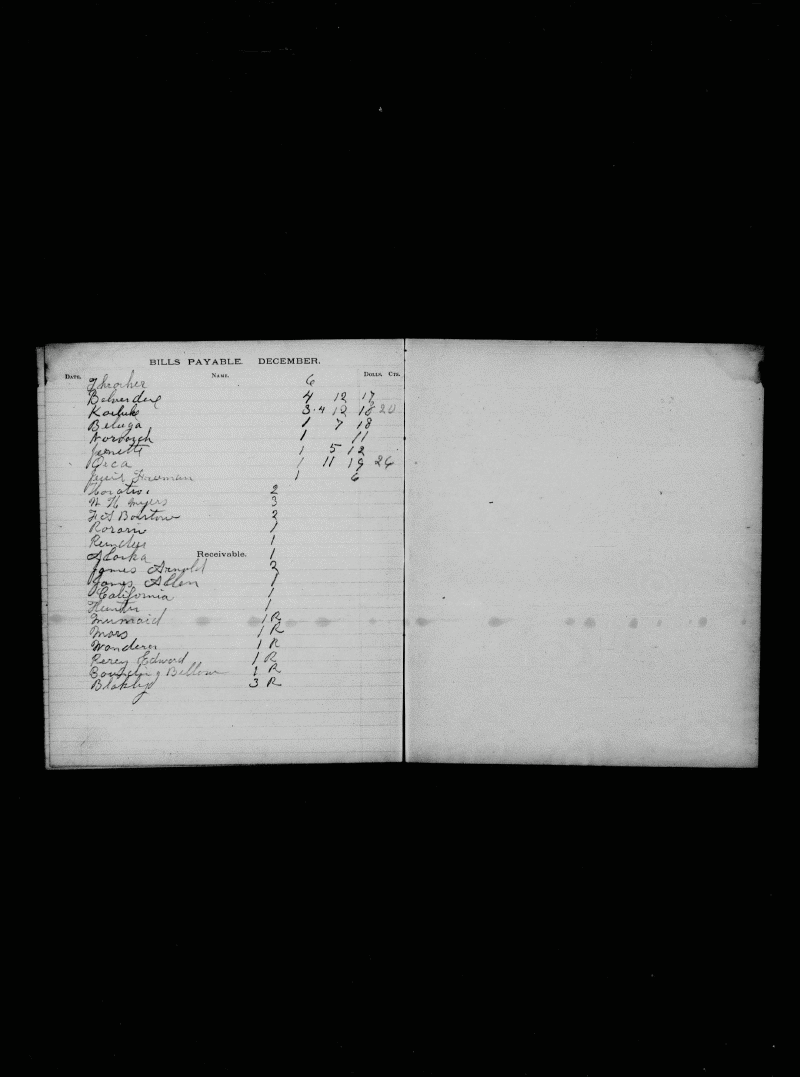 BILLS PAYABLE. DECEMBER.
DATE. NAME. DOLLS. CTS.
Thrasher 6
Belvedere 4 12 17
Karluk 3.4 12 18 20
Beluga 1 7 18
Norwagh 1 11
Jenette 1 5 12
Orca 1 11 19 24
Jessie Freeman 1 6
Horatio 2
W H Myers 3
F S Barstow 2
Rosario 1
1
Alaska Receivable. 1
James Arnold 2
James Allen 1
California 1
Hunter 1
Mermaid 1 R
Mars 1 R
Wanderer 1 R
Percy Edward 1 R
Bounding Bellow 1 R
3 R